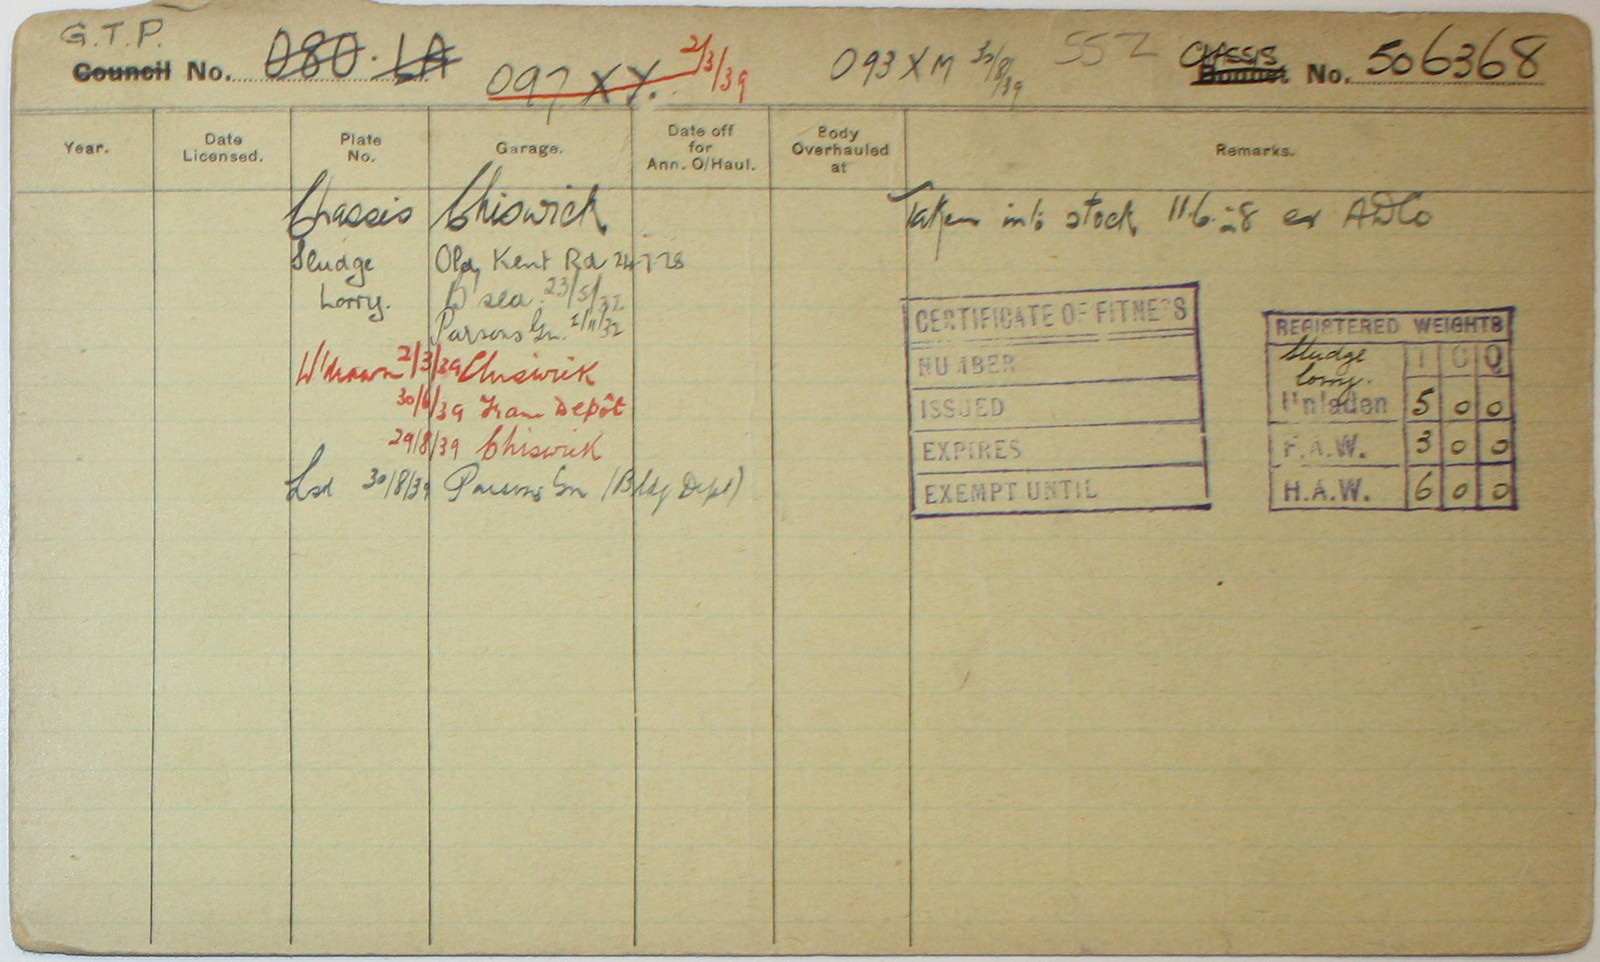 G.T.P.
Council No. 080 LA 097 XY. 2/3/39 093 XM 30/8/39 55Z CHASSIS Bonnet No. 506368
Year. Date Licensed. Plate No. Garage. Date off for Ann. O/Haul. Body Overhauled at Remarks.
Chassis Chiswick Taken into stock 11.6.28 ex ADCo
Sludge Old Kent Rd 24-7-28
Lorry. B'sea 23/5/32
Parsons Gn. 2/11/32
W'drawn 2/3/39 Chiswick
30/6/39 Tram Depôt
29/8/39 Chiswick
Lsd 30/8/39 Parsons Gn (Bldg Dept)
CERTIFICATE OF FITNESS
NUMBER
ISSUED
EXPIRES
EXEMPT UNTIL
REGISTERED WEIGHTS
Sludge lorry. T C Q
Unladen 5 0 0
F.A.W. 3 0 0
H.A.W. 6 0 0